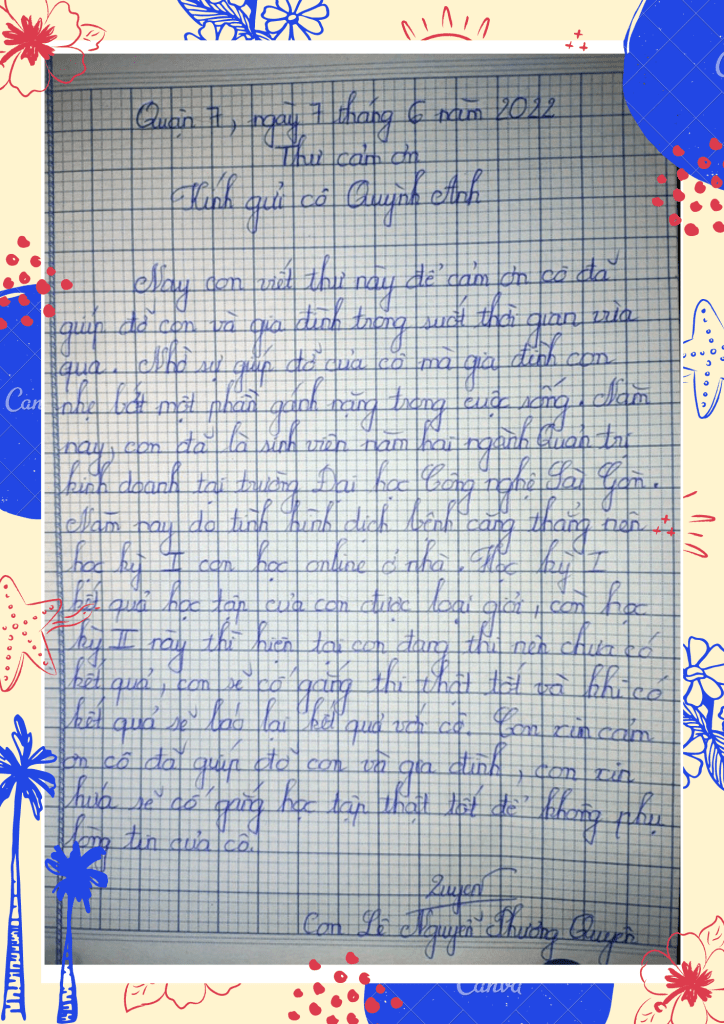 Quận 7, ngày 7 tháng 6 năm 2022
Thư cảm ơn
Kính gửi cô Quỳnh Anh
Nay con viết thư này để cảm ơn cô đã
giúp đỡ con và gia đình trong suốt thời gian vừa
qua. Nhờ sự giúp đỡ của cô mà gia đình con
nhẹ bớt một phần gánh nặng trong cuộc sống. Năm
nay, con đã là sinh viên năm hai ngành Quản trị
kinh doanh tại trường Đại học Công nghệ Sài Gòn.
Năm nay do tình hình dịch bệnh căng thẳng nên
học kỳ I con học online ở nhà. Học kỳ I
kết quả học tập của con được loại giỏi, còn học
kỳ II này thì hiện tại con đang thi nên chưa có
kết quả, con sẽ cố gắng thi thật tốt và khi có
kết quả sẽ báo lại kết quả với cô. Con xin cảm
ơn cô đã giúp đỡ con và gia đình, con xin
hứa sẽ cố gắng học tập thật tốt để không phụ
lòng tin của cô.
Quyên
Con Lê Nguyễn Phương Quyên
Can
C
Canva